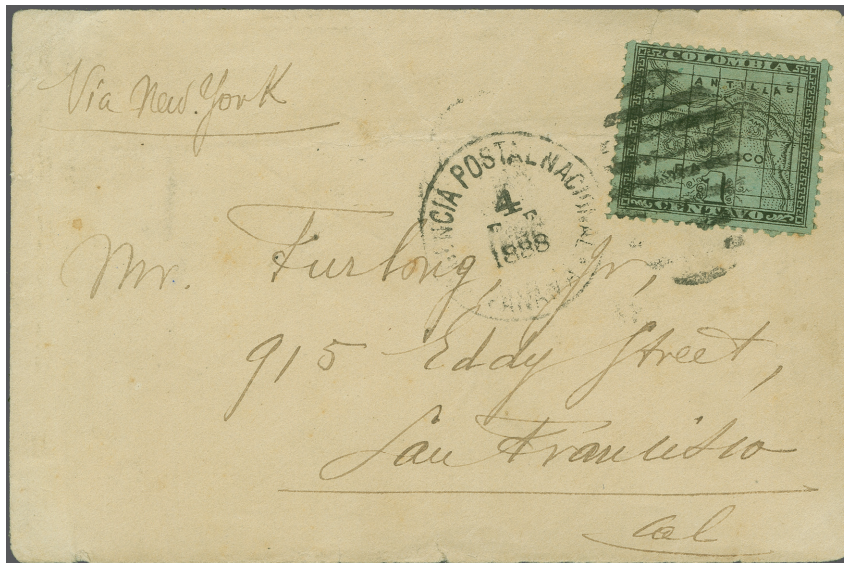 Via New. York
COLOMBIA
ANTILLAS
1
CENTAVO
POSTAL NACIONAL
4
1888
Mr. Furlong, Jr,
915 Eddy Street,
San Francisco
Cal